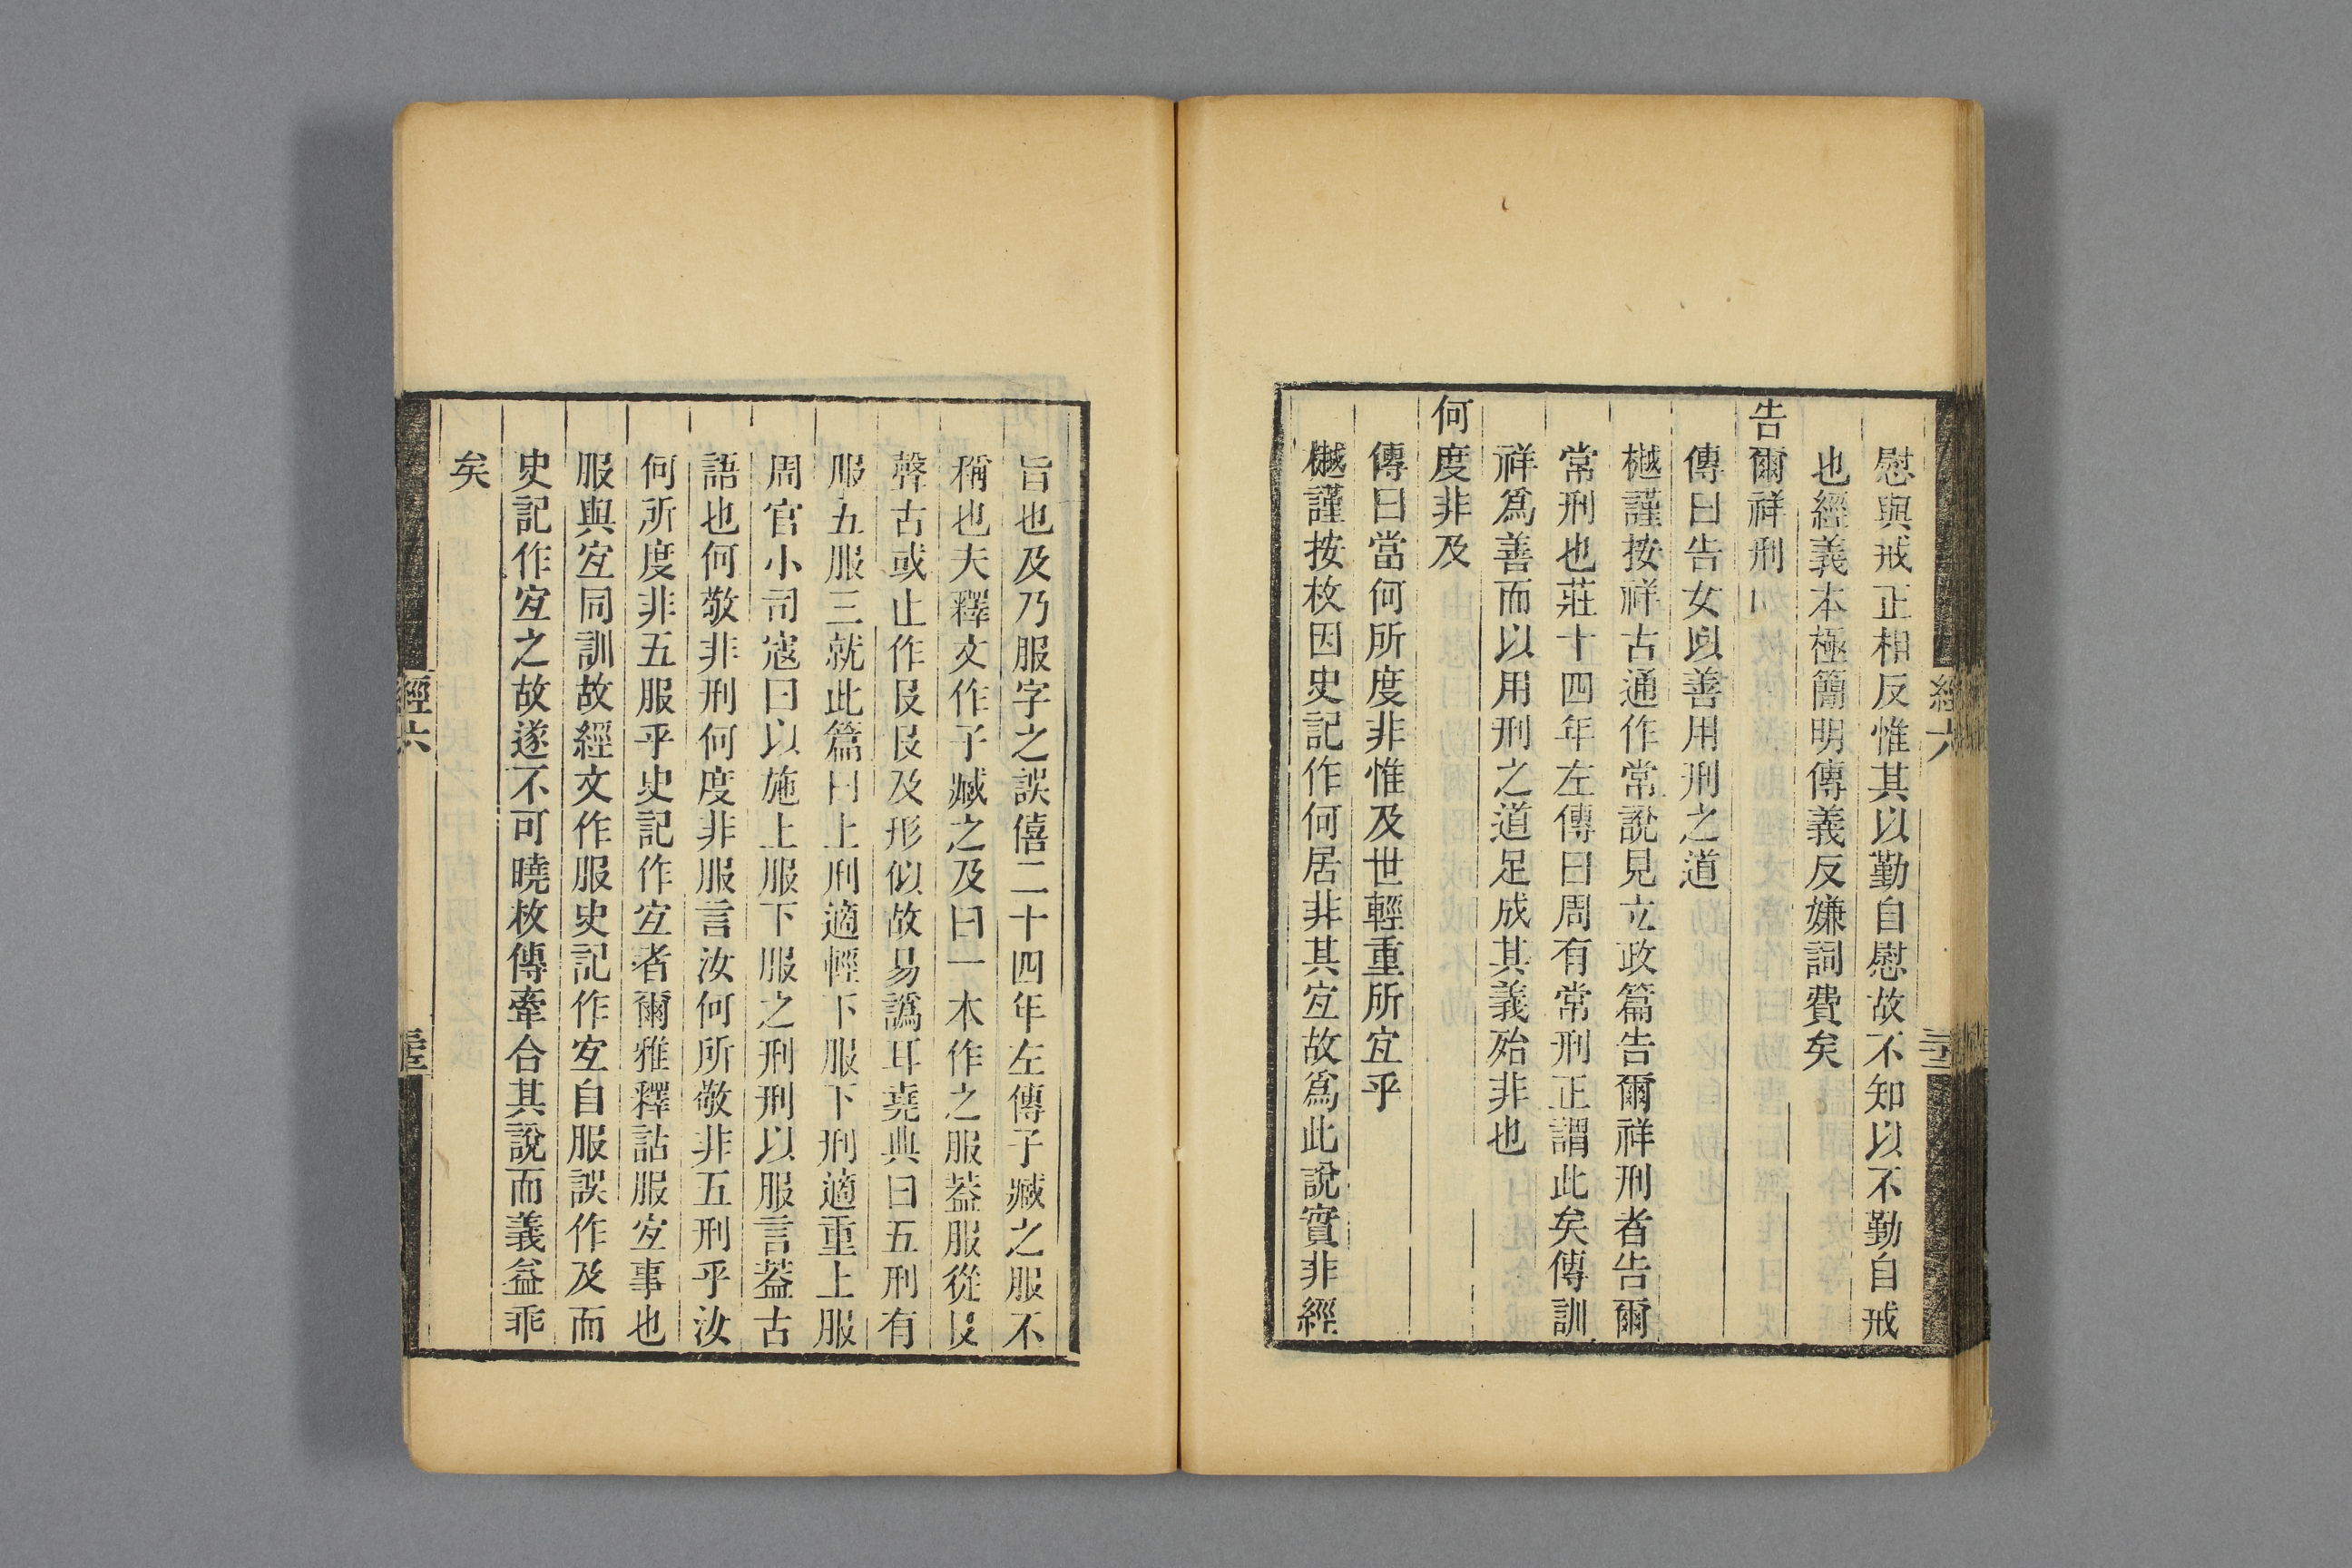 慰與戒正相反惟其以勤自慰故不知以不勤自戒
也經義本極簡明傳義反嫌詞費矣
告爾祥刑
傳曰告女㕥善用刑之道
樾謹按祥古通作常說見立政篇告爾祥刑者告爾
常刑也莊十四年左傳曰周有常刑正謂此矣傳訓
祥爲善而以用刑之道足成其義殆非也
何度非及
傳曰當何所度非惟及世輕重所宐乎
樾謹按枚因史記作何居非其宐故爲此說實非經
旨也及乃服字之誤僖二十四年左傳子臧之服不
稱也夫釋文作子臧之及曰一本作之服葢服從𠬝
聲古或止作𠬝𠬝及形似故易譌耳堯典曰五刑有
服五服三就此篇曰上刑適輕下服下刑適重上服
周官小司寇曰以施上服下服之刑刑以服言葢古
語也何敬非刑何度非服言汝何所敬非五刑乎汝
何所度非五服乎史記作宐者爾雅釋詁服宐事也
服與宐同訓故經文作服史記作宐自服誤作及而
史記作宐之故遂不可曉枚傳牽合其說而義益乖
矣
經六